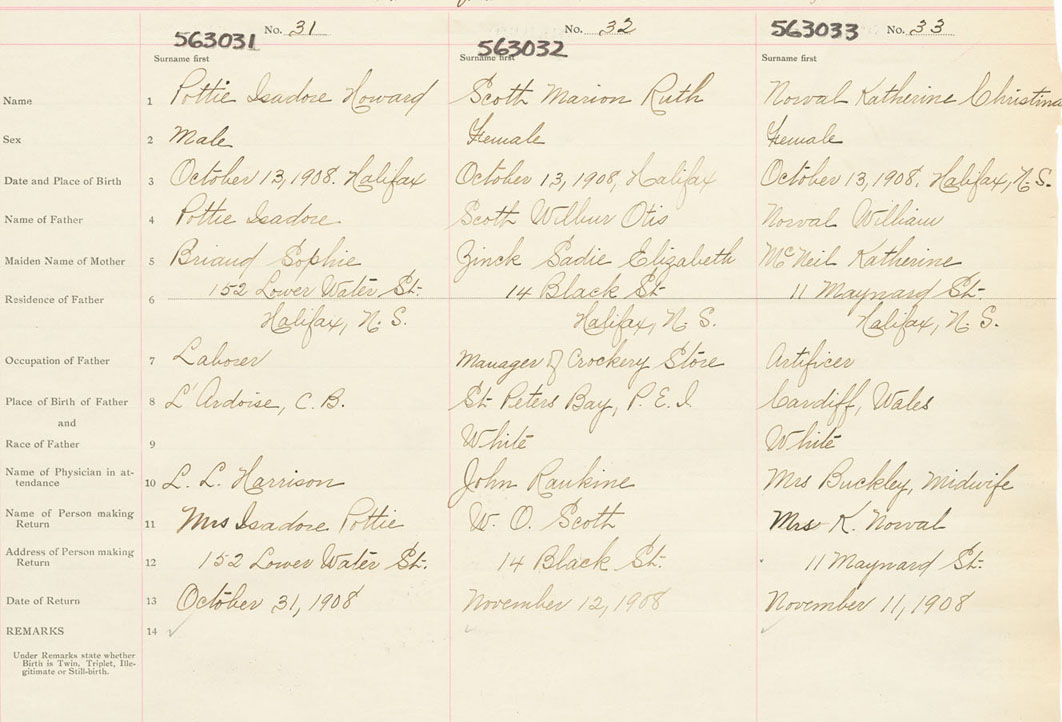 563031 No. 31 563032 No. 32 563033 No. 33
Surname first Surname first Surname first
Name 1 Pottie Isadore Howard Scoth Marion Ruth Norval Katherine Christina
Sex 2 Male Female Female
Date and Place of Birth 3 October 13, 1908. Halifax October 13, 1908, Halifax October 13, 1908. Halifax, N. S.
Name of Father 4 Pottie Isadore Scoth Wilbur Otis Norval William
Maiden Name of Mother 5 Briand Sophie Zinck Sadie Elizabeth McNeil Katherine
Residence of Father 6 152 Lower Water St. 14 Black St. 11 Maynard St.
Halifax, N. S. Halifax, N. S. Halifax, N. S.
Occupation of Father 7 Laborer Manager of Crockery Store Artificer
Place of Birth of Father 8 L'Ardoise, C. B. St. Peters Bay, P. E. I. Cardiff, Wales
and
Race of Father 9 White White
Name of Physician in at-
tendance 10 L. L. Harrison John Rankine Mrs Buckley, Midwife
Name of Person making
Return 11 Mrs Isadore Pottie W. O. Scoth Mrs K. Norval
Address of Person making
Return 12 152 Lower Water St. 14 Black St. 11 Maynard St.
Date of Return 13 October 31, 1908 November 12, 1908 November 11, 1908
REMARKS 14
Under Remarks state whether
Birth is Twin, Triplet, Ille-
gitimate or Still-birth.